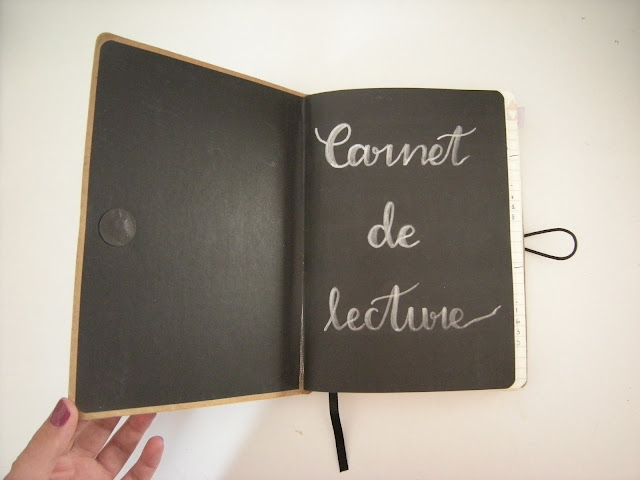 Carnet
de
lecture